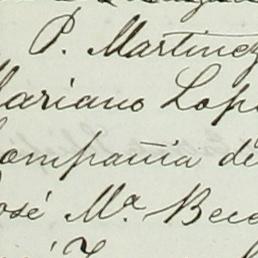 P. Martinez
Mariano Lop
Compañia de
José Mª Bec